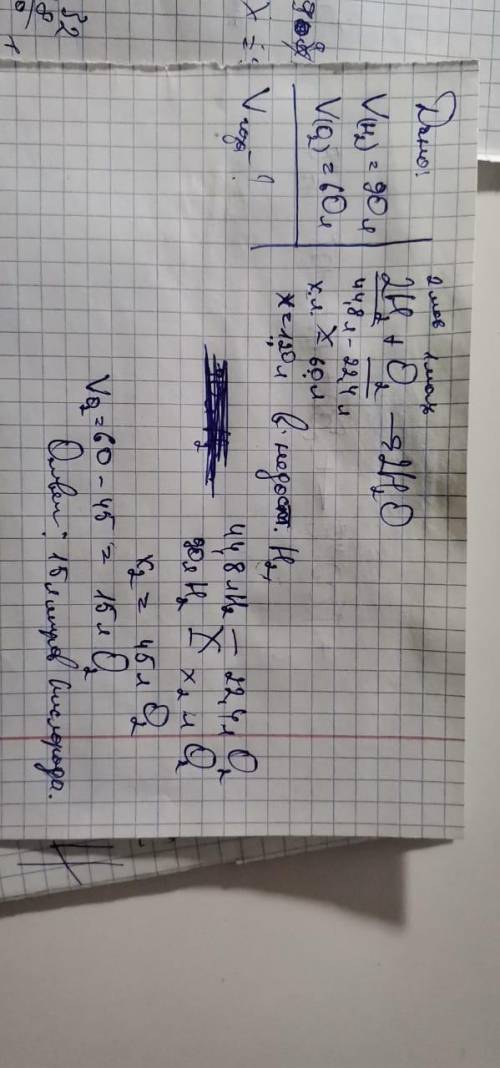 Дано:
V(H₂) = 90 л
V(O₂) = 60 л
2 моль 1 моль
2H₂ + O₂ → 2H₂O
44,8 л – 22,4 л
х л 60 л
x = 120 л
В недост. H₂,
44,8 л H₂ – 22,4 л O₂
90 л H₂ x₂ л O₂
x₂ = 45 л O₂
V O₂ = 60 - 45 = 15 л O₂
Ответ: 15 литров кислорода.